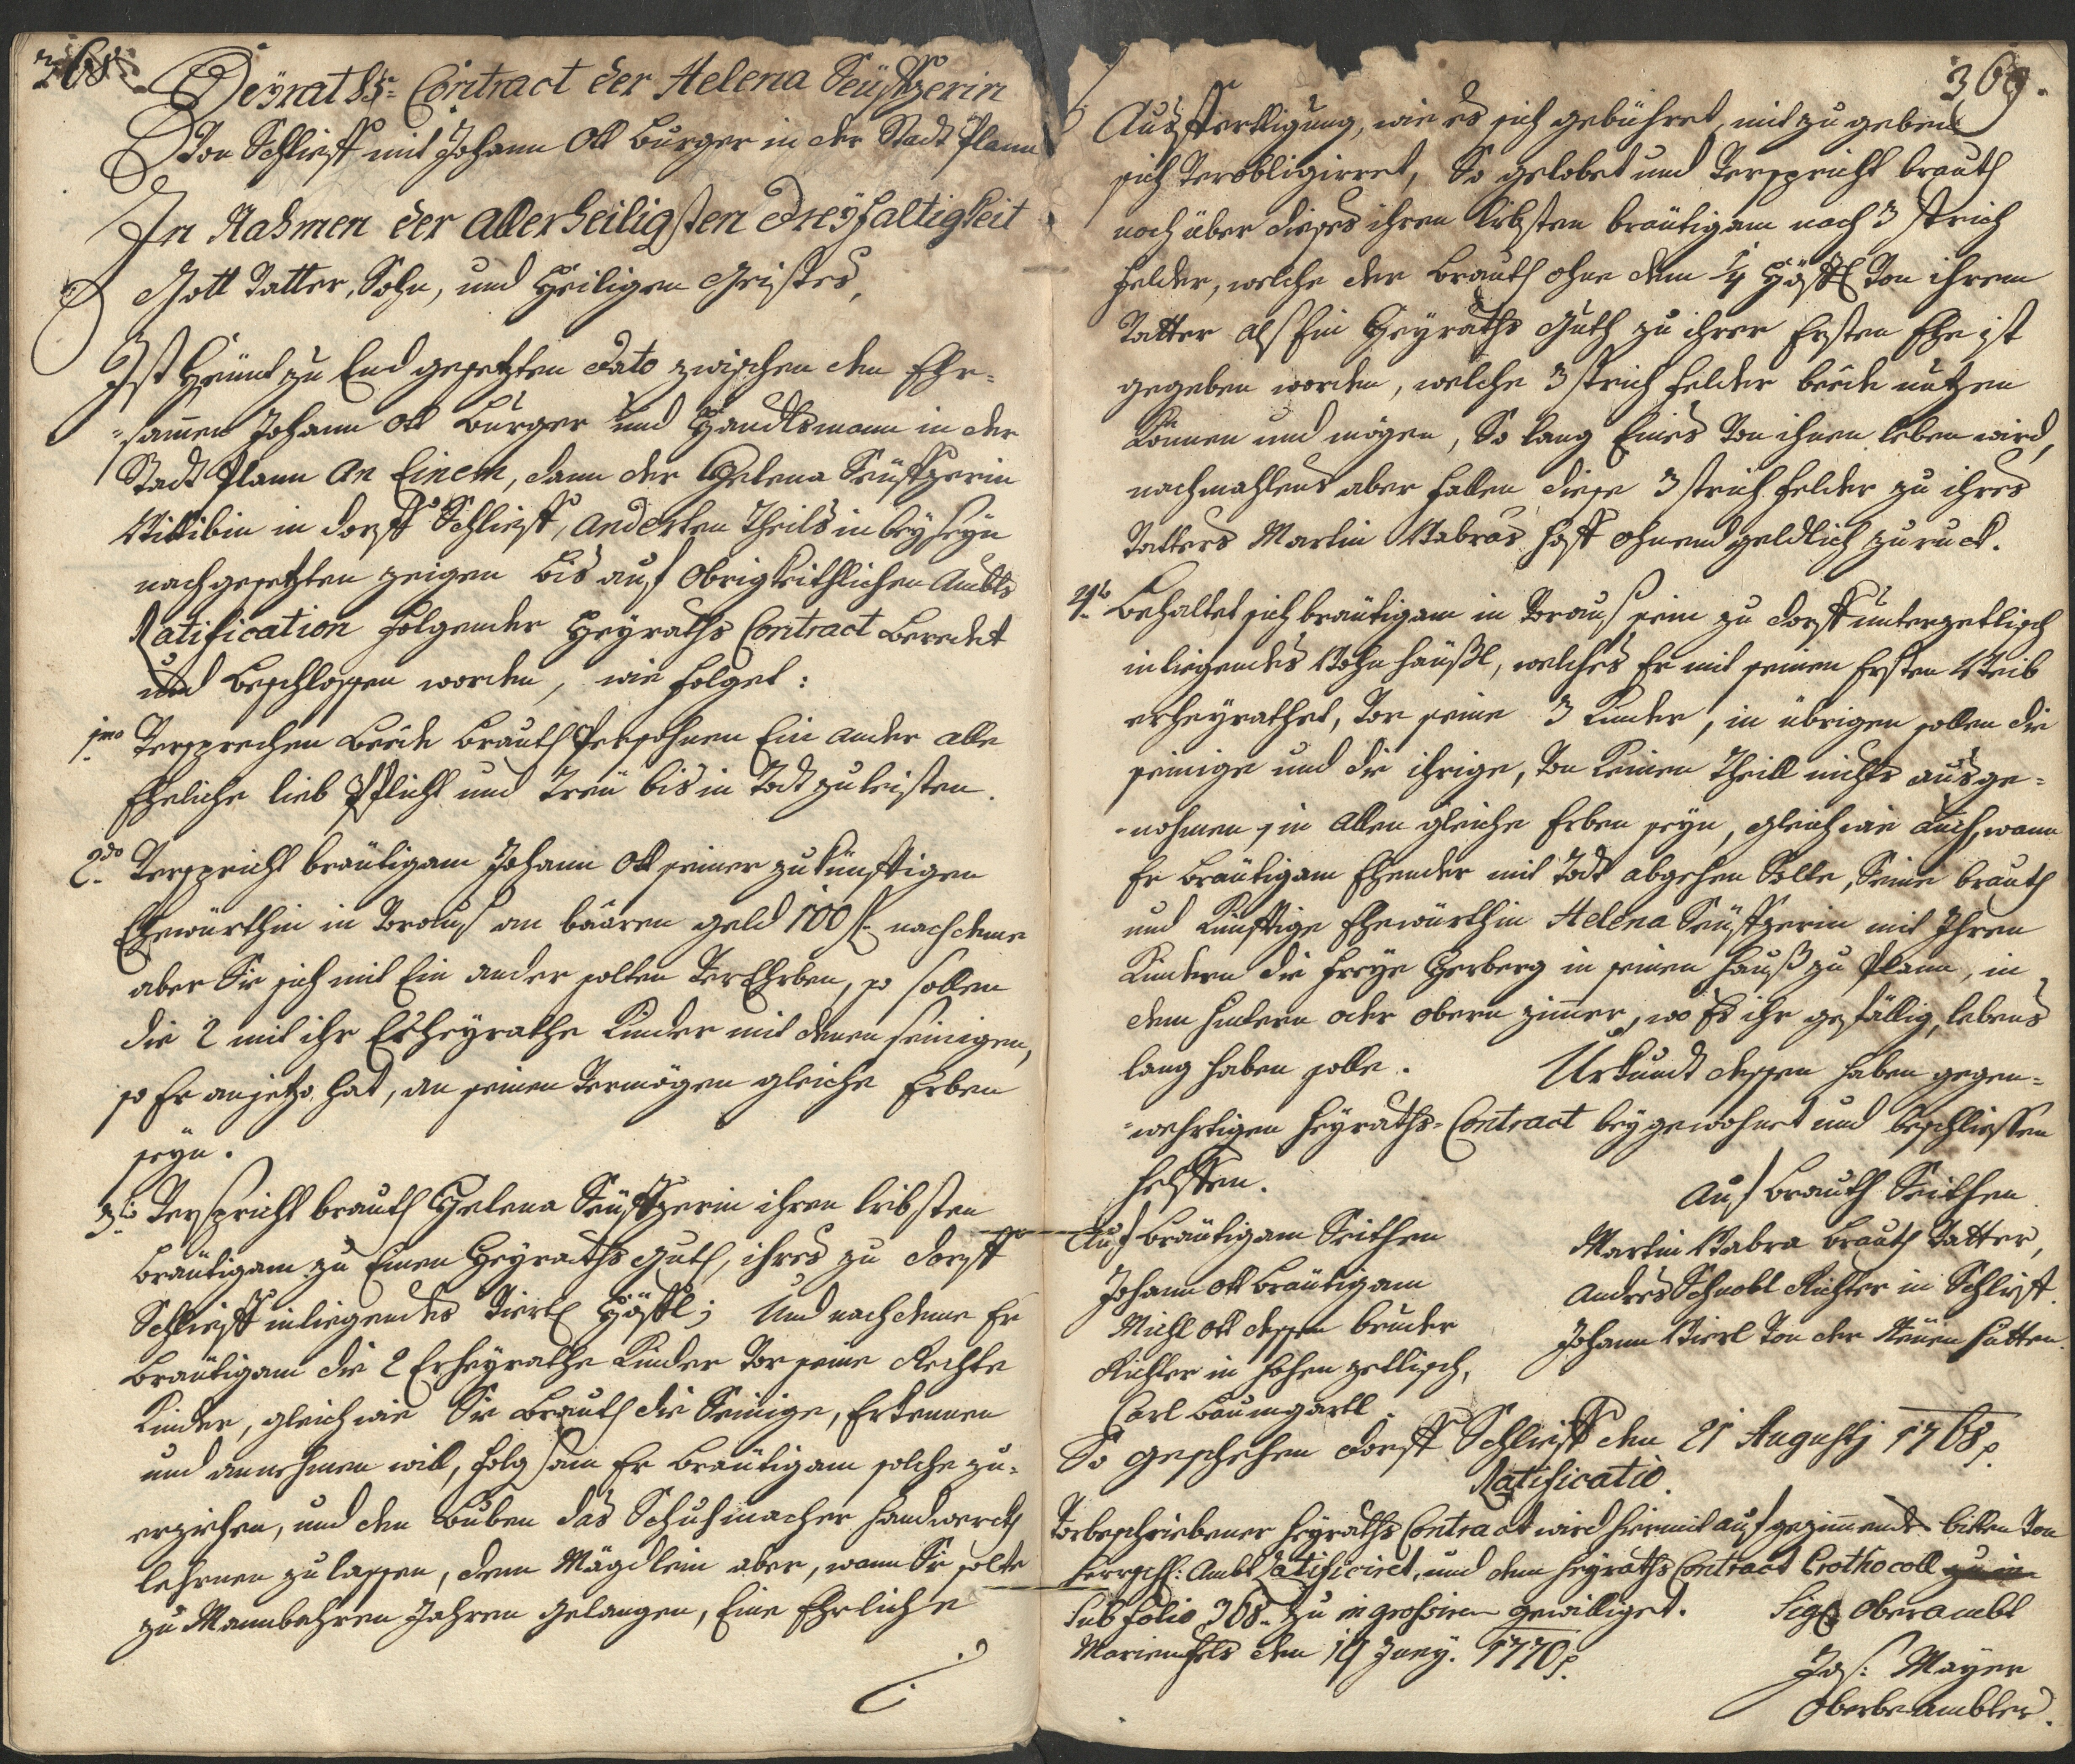 368.
Heÿraths-Contract der Helena Seüffzerin
Von Schlieff mit Johann Ott burger in der Stadt Plann
In Nahmen der allerheiligsten Dreÿfaltigkeit
Gott Vatter, Sohn, und Heiligen Geistes,
Ist Heünt zu End gesetzten dato zwischen dem Ehr-
-samen Johann Ott Burger und Handlsmann in der
Stadt Plann an Einem, dann der Helena Seüffzerin
Wittibin in Dorff Schlieff, anderten Theils in beÿseÿn
nachgesetzten zeigen bis auf obrigkeithlichen Ambts
Ratification folgender Heÿraths Contract beredet
und beschlossen worden, wie folget:
1mo Versprechen beede brauth Persohnen Ein ander alle
Eheliche lieb Pflicht und Treü bis in Todt zu leisten.
2do Verspricht bräutigam Johann Ott seiner zukünfftigen
Ehewürthin in Voraus an baaren geld 100 f. nachdeme
aber Sie sich mit Ein ander solten VerEhrben, so sollen
die 2 mit ihr Erheÿrathe Kinder mit denen seinigen,
so Er anjetzo hat, an seinen Vermögen gleiche Erben
seÿn.
3tio Verspricht brauth Helena Seüffzerin ihren liebsten
bräutigam zu Einen Heÿraths guth, ihres zu Dorff
Schlieff inliegendes Viertl Höffl; Und nachdeme Er
bräutigam die 2 Erheÿrathe Kinder Vor seine Rechte
Kinder, gleich wie Sie brauth die Seinige, Erkennen
und annehmen will, folgsam Er bräutigam solche zu-
erziehen, und den buben das Schuhmacher Handwerckh
lehrnen zu lassen, dem Mägdlein aber, wann Sie solte
zu Mannbahren Jahren gelangen, Eine Ehrliche
369.
Ausfferttigung, wie es sich gebühret, mit zu geben
sich Verobligirret, So gelobet und Verspricht brauth
noch über dieses ihren liebsten bräutigam noch 3 strich
Felder, welche der brauth ohne dem 1/4 Höffl Von ihrem
Vatter alß Ein Heÿraths Guth zu ihrer Ersten Ehe ist
gegeben worden, welche 3 strich Felder beede nutzen
können und mögen, So lang Eines Von ihnen leben wird,
nachmahlens aber fallen diese 3 strich Felder zu ihres
Vatters Martin Wabras Hoff ohnendgeldlich zuruck.
4to Behaltet sich bräutigam in Voraus sein zu Dorff unterzetlisch
inliegendes Wohn häußl, welches Er mit seinen Ersten Weib
erheÿrathet, Vor seine 3 Kinder, in übrigen sollen die
seinige und die ihrige, Von keinen Theill nichts ausge-
-nohmen, in allen gleiche Erben seÿn, gleich wie auch, wann
Er bräutigam Ehender mit Todt abgehen Solte, Seine brauth
und künfftige Ehewürthin Helena Seüffzerin mit Ihren
Kindern die Freÿe Herberg in seinen Hauß zu Plann, in
dem hintern oder obern zimer, wo Es ihr gefällig, lebens
lang haben solle. Urkundt dessen haben gegen-
-wehrtigen Heÿraths-Contract beÿgewohnet und beschliessen
helffen.
Auf brauth Seithen
Martin Wabra brauth Vatter,
Andres Schnobl Richter in Schlieff.
Johann Vierl Von der Neüen Hütten.
Auf bräutigam Seithen
Johann Ott bräutigam
Michl Ott dessen bruder
Richter in Hohen zetlisch,
Carl Baumgartl.
So geschehen Dorff Schlieff den 21 Augusti 1768.
Ratificatio.
Vorbeschriebener Heÿraths Contract wird hiermit auf gezimmendes bitten Von
Herrschl: Ambt ratificiret, und dem Heÿraths Contract Prothocoll zu in
Sub folio 368. zu ingrossiren gewilliget. Sigl Oberambt
Marienfels den 14 Juny. 1770.
Jos: Mayer
Oberbeambter.